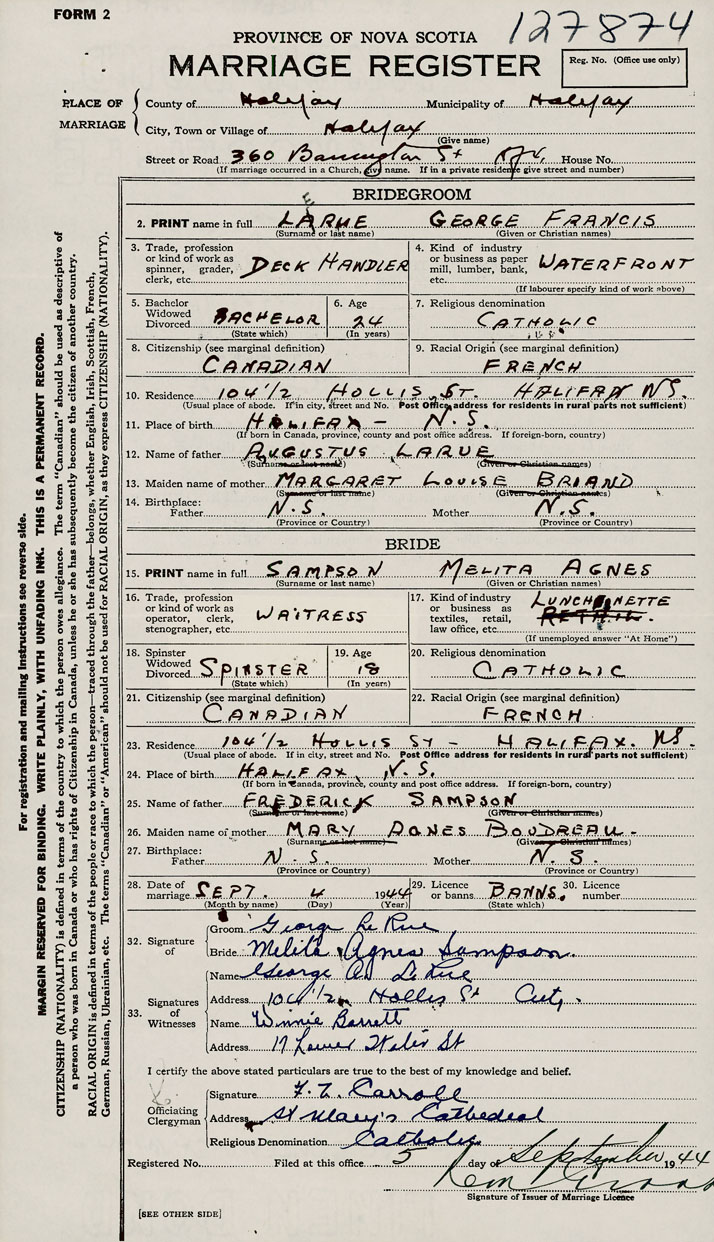 FORM 2
127874
PROVINCE OF NOVA SCOTIA
MARRIAGE REGISTER
Reg. No. (Office use only)
PLACE OF MARRIAGE
County of Halifax Municipality of Halifax
City, Town or Village of Halifax
(Give name)
Street or Road 360 Barrington St House No.
(If marriage occurred in a Church, give name. If in a private residence give street and number)
BRIDEGROOM
E
2. PRINT name in full LARUE GEORGE FRANCIS
(Surname or last name) (Given or Christian names)
3. Trade, profession or kind of work as spinner, grader, clerk, etc. DECK HANDLER
4. Kind of industry or business as paper mill, lumber, bank, etc. WATERFRONT
(If labourer specify kind of work above)
5. Bachelor Widowed Divorced BACHELOR
(State which)
6. Age 24
(In years)
7. Religious denomination
CATHOLIC
8. Citizenship (see marginal definition)
CANADIAN
9. Racial Origin (see marginal definition)
FRENCH
10. Residence 104 1/2 HOLLIS ST. HALIFAX N.S.
(Usual place of abode. If in city, street and No. Post Office address for residents in rural parts not sufficient)
11. Place of birth HALIFAX - N.S.
(If born in Canada, province, county and post office address. If foreign-born, country)
12. Name of father AUGUSTUS LARUE
(Surname or last name) (Given or Christian names)
13. Maiden name of mother MARGARET LOUISE BRIAND
(Surname or last name) (Given or Christian names)
14. Birthplace: Father N.S. Mother N.S.
(Province or Country) (Province or Country)
BRIDE
15. PRINT name in full SAMPSON MELITA AGNES
(Surname or last name) (Given or Christian names)
16. Trade, profession or kind of work as operator, clerk, stenographer, etc. WAITRESS
17. Kind of industry or business as textiles, retail, law office, etc. LUNCHONETTE
RETAIL.
(If unemployed answer "At Home")
18. Spinster Widowed Divorced SPINSTER
(State which)
19. Age 18
(In years)
20. Religious denomination
CATHOLIC
21. Citizenship (see marginal definition)
CANADIAN
22. Racial Origin (see marginal definition)
FRENCH
23. Residence 104 1/2 HOLLIS ST - HALIFAX. N.S.
(Usual place of abode. If in city, street and No. Post Office address for residents in rural parts not sufficient)
24. Place of birth HALIFAX, N.S.
(If born in Canada, province, county and post office address. If foreign-born, country)
25. Name of father FREDERICK SAMPSON
(Surname or last name) (Given or Christian names)
26. Maiden name of mother MARY AGNES BOUDREAU.
(Surname or last name) (Given or Christian names)
27. Birthplace: Father N.S. Mother N.S.
(Province or Country) (Province or Country)
28. Date of marriage SEPT. 4 1944
(Month by name) (Day) (Year)
29. Licence or banns BANNS.
(State which)
30. Licence number
32. Signature of
Groom George Le Rue
Bride Melita Agnes Sampson.
33. Signatures of Witnesses
Name George A. Le Rue
Address 104 1/2 Hollis St City.
Name Winnie Barrett
Address 17 Lower Water St
I certify the above stated particulars are true to the best of my knowledge and belief.
Officiating Clergyman
Signature Carroll
Address St Mary's Cathedral
Religious Denomination Catholic
Registered No. Filed at this office 5 day of September 1944
Signature of Issuer of Marriage Licence
[SEE OTHER SIDE]
For registration and mailing instructions see reverse side.
MARGIN RESERVED FOR BINDING. WRITE PLAINLY, WITH UNFADING INK. THIS IS A PERMANENT RECORD.
CITIZENSHIP (NATIONALITY) is defined in terms of the country to which the person owes allegiance. The term "Canadian" should be used as descriptive of
a person who was born in Canada or who has rights of Citizenship in Canada, unless he or she has subsequently become the citizen of another country.
RACIAL ORIGIN is defined in terms of the people or race to which the person—traced through the father—belongs, whether English, Irish, Scottish, French,
German, Russian, Ukrainian, etc. The terms "Canadian" or "American" should not be used for RACIAL ORIGIN, as they express CITIZENSHIP (NATIONALITY).